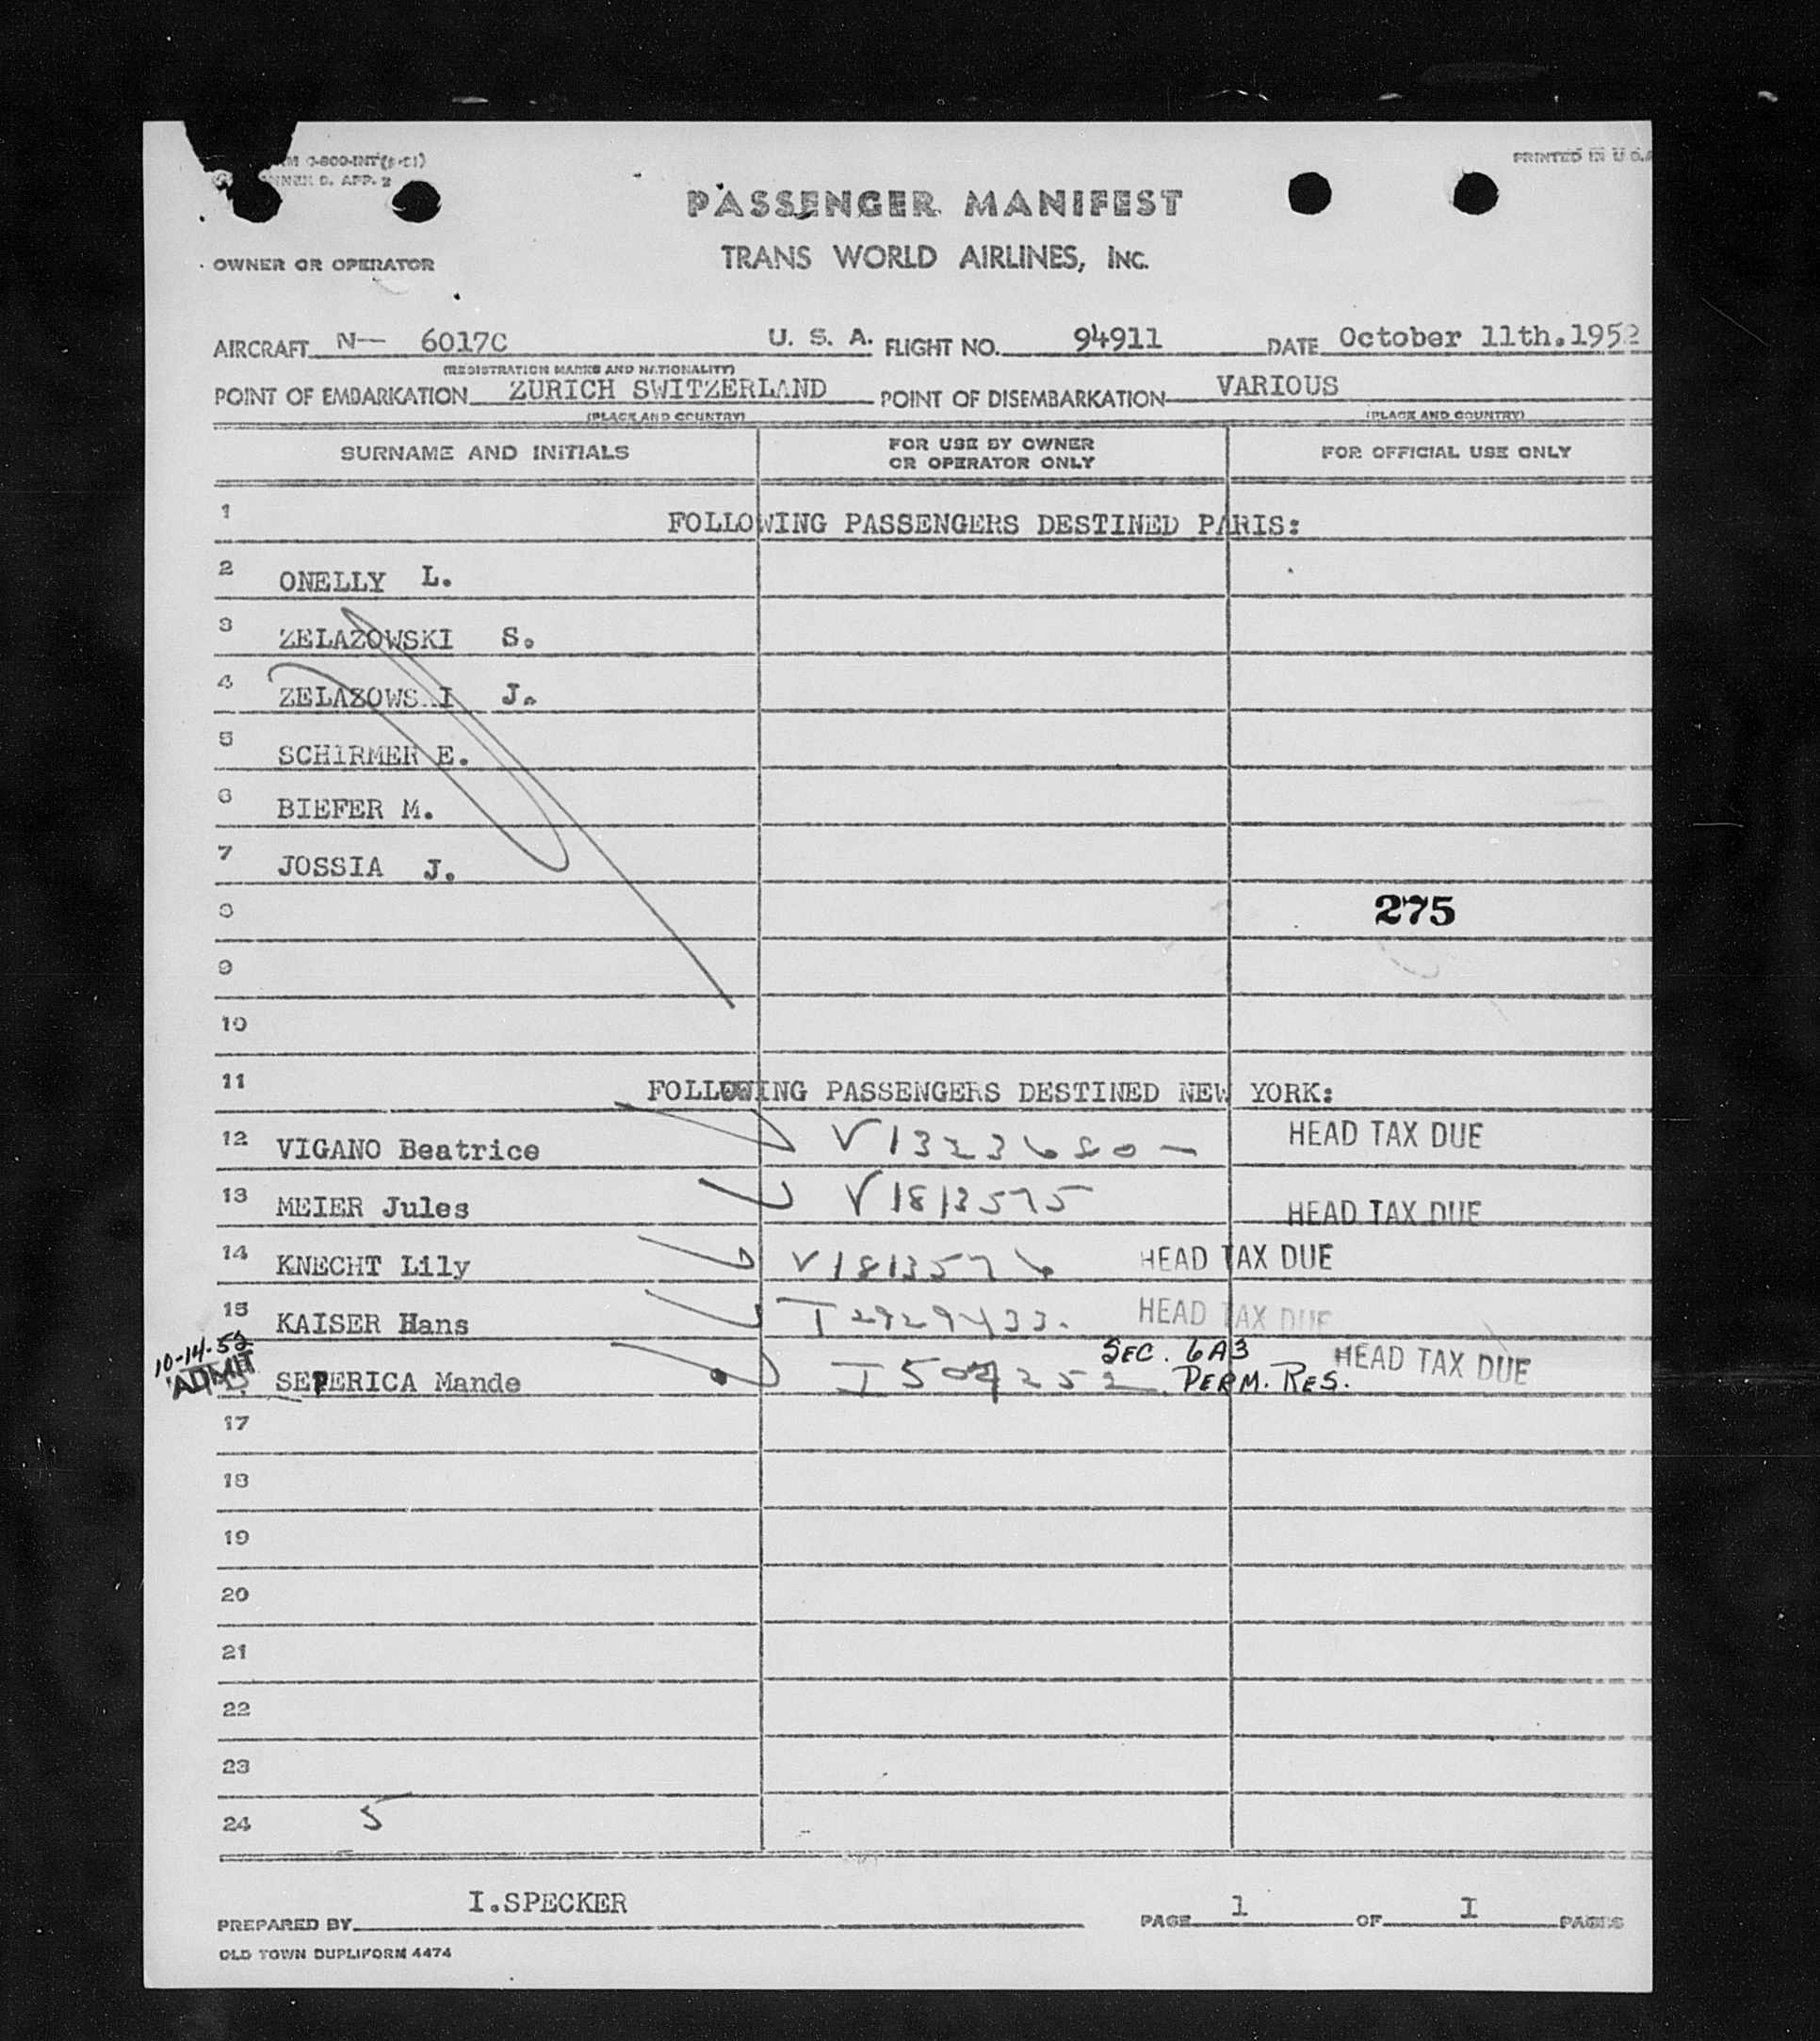 PRINTED IN U.S.A
ANNEX 9. APP. 2
PASSENGER MANIFEST
OWNER OR OPERATOR
TRANS WORLD AIRLINES, INC.
AIRCRAFT N— 6017C U. S. A. FLIGHT NO. 94911 DATE October 11th.1952
(REGISTRATION MARKS AND NATIONALITY)
POINT OF EMBARKATION ZURICH SWITZERLAND POINT OF DISEMBARKATION VARIOUS
(PLACE AND COUNTRY) (PLACE AND COUNTRY)
SURNAME AND INITIALS FOR USE BY OWNER OR OPERATOR ONLY FOR OFFICIAL USE ONLY
1 FOLLOWING PASSENGERS DESTINED PARIS:
2 ONELLY L.
3 ZELAZOWSKI S.
4 ZELAZOWSKI J.
5 SCHIRMER E.
6 BIEFER M.
7 JOSSIA J.
8 275
9
10
11 FOLLOWING PASSENGERS DESTINED NEW YORK:
12 VIGANO Beatrice V1323680 — HEAD TAX DUE
13 MEIER Jules V1813575 HEAD TAX DUE
14 KNECHT Lily V1813576 HEAD TAX DUE
15 KAISER Hans T2929433. HEAD TAX DUE
10-14-52 ADMIT SEPERICA Mande I504252 SEC. 6A3 PERM. RES. HEAD TAX DUE
17
18
19
20
21
22
23
24 5
PREPARED BY I.SPECKER PAGE 1 OF I PAGES
OLD TOWN DUPLIFORM 4474